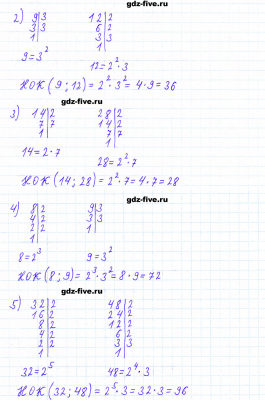 gdz-five.ru
2) 9|3 12|2
3|3 6|2
1| 3|3
1|
9 = 3²
12 = 2² · 3
НОК (9; 12) = 2² · 3² = 4 · 9 = 36
gdz-five.ru
3) 14|2 28|2
7|7 14|2
1| 7|7
1|
14 = 2 · 7
28 = 2² · 7
НОК (14; 28) = 2² · 7 = 4 · 7 = 28
gdz-five.ru
4) 8|2 9|3
4|2 3|3
2|2 1|
1|
8 = 2³ 9 = 3²
НОК (8; 9) = 2³ · 3² = 8 · 9 = 72
gdz-five.ru
5) 32|2 48|2
16|2 24|2
8|2 12|2
4|2 6|2
2|2 3|3
1| 1|
32 = 2⁵ 48 = 2⁴ · 3
НОК (32; 48) = 2⁵ · 3 = 32 · 3 = 96